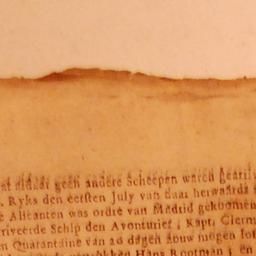 aldaar geen andere Scheepen waren
Ryks den eersten July van daar herwaards
Alicanten was ordre van Madrid gekoomen
riveerde Schip den Avonturier, Kapt.
Quarantaine van 20 dagen zouw mogen
Hans Rootman ; en